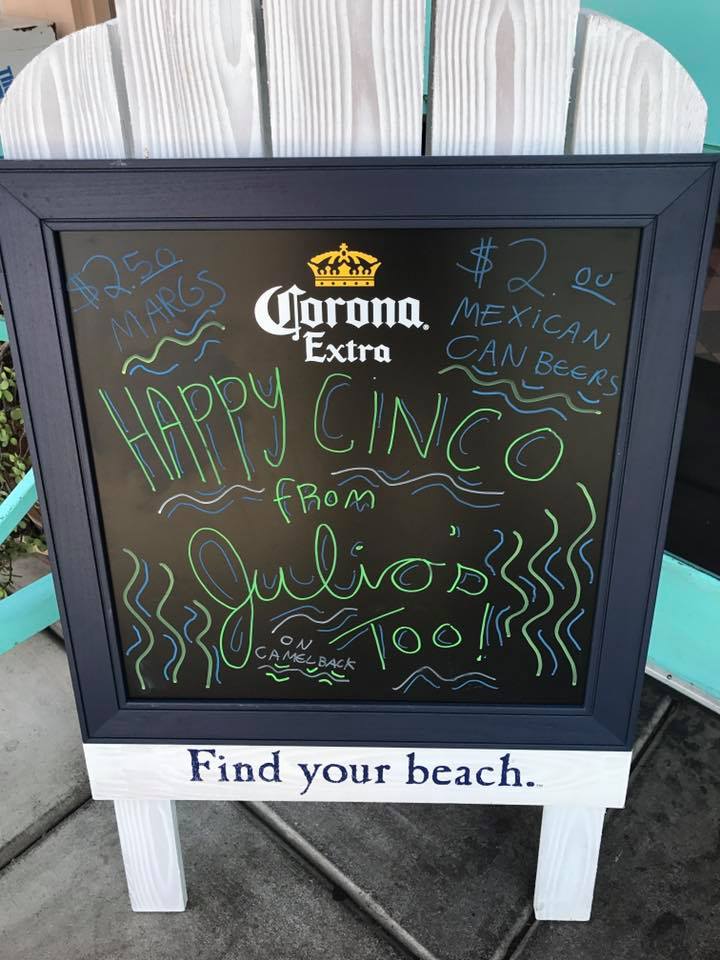 $2.50
MARGS
Corona
Extra
$2.00
MEXICAN
CAN BEERS
HAPPY CINCO
FROM
Julio's
TOO!
ON
CAMELBACK
Find your beach.